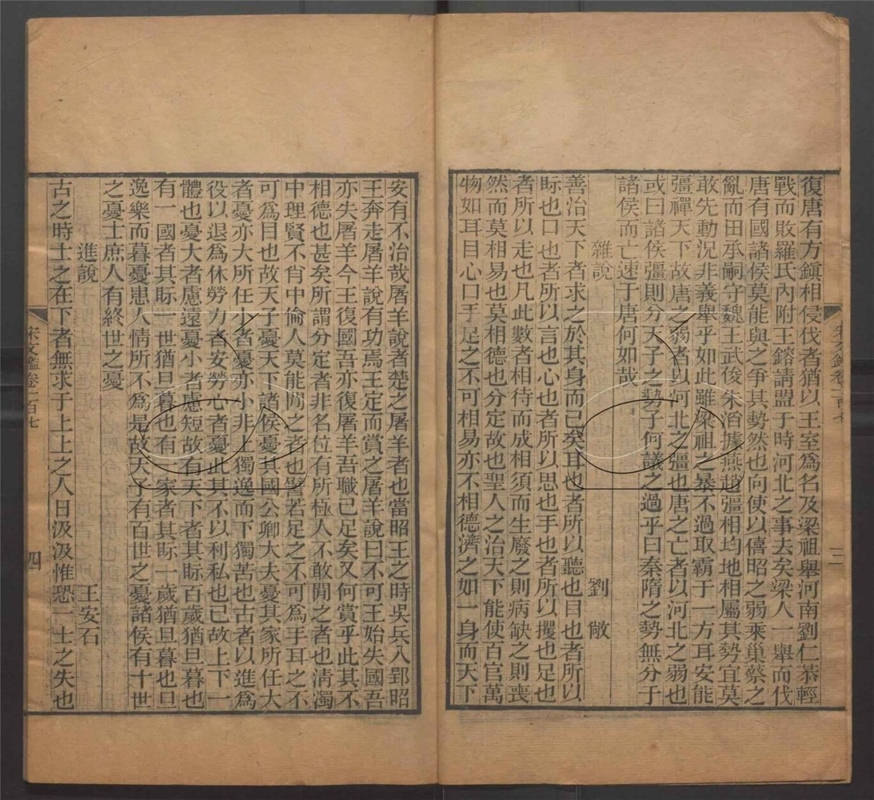 復唐有方鎭相侵伐者猶以王室爲名及梁祖舉河南劉仁恭輕
戰而敗羅氏內附王鎔請盟于時河北之事去矣梁人一舉而伐
唐有國諸侯莫能與之爭其勢然也向使以僖昭之弱乘巢蔡之
亂而田承嗣守魏王武俊朱滔據燕趙彊相均地相屬其勢宜莫
敢先動況非義舉乎如此雖梁祖之暴不過取霸于一方耳安能
彊禪天下故唐之弱者以河北之彊也唐之亡者以河北之弱也
或曰諸侯彊則分天子之勢子何議之過乎曰秦隋之勢無分于
諸侯而亡速于唐何如哉
雜說 劉敞
善治天下者求之於其身而已矣耳也者所以聽也目也者所以
眎也口也者所以言也心也者所以思也手也者所以攫也足也
者所以走也凡此數者相待而成相須而生廢之則病缺之則喪
然而莫相易也莫相德也分定故也聖人之治天下能使百官萬
物如耳目心口手足之不可相易亦不相德濟之如一身而天下
宋文鑑卷一百七 三
安有不治哉屠羊說者楚之屠羊者也當昭王之時吳兵入郢昭
王奔走屠羊說有功焉王定而賞之屠羊說曰不可王始失國吾
亦失屠羊今王復國吾亦復屠羊吾職已足矣又何賞乎此其不
相德也甚矣所謂分定者非名位有所極人不敢閒之者也清濁
中理賢不肖中倫人莫能閒之者也譬若足之不可爲手耳之不
可爲目也故天子憂天下諸侯憂其國公卿大夫憂其家所任大
者憂亦大所任小者憂亦小非上獨逸而下獨苦也古者以進爲
役以退爲休勞力者安勞心者憂此其不以利私也已故上下一
體也憂大者慮遠憂小者慮短故有天下者其眎百歲猶旦暮也
有一國者其眎一世猶旦暮也有一家者其眎一歲猶旦暮也旦
逸樂而暮憂患人情所不爲是故天子有百世之憂諸侯有十世
之憂士庶人有終世之憂
進說 王安石
古之時士之在下者無求于上上之人日汲汲惟恐一士之失也
宋文鑑卷一百七 四